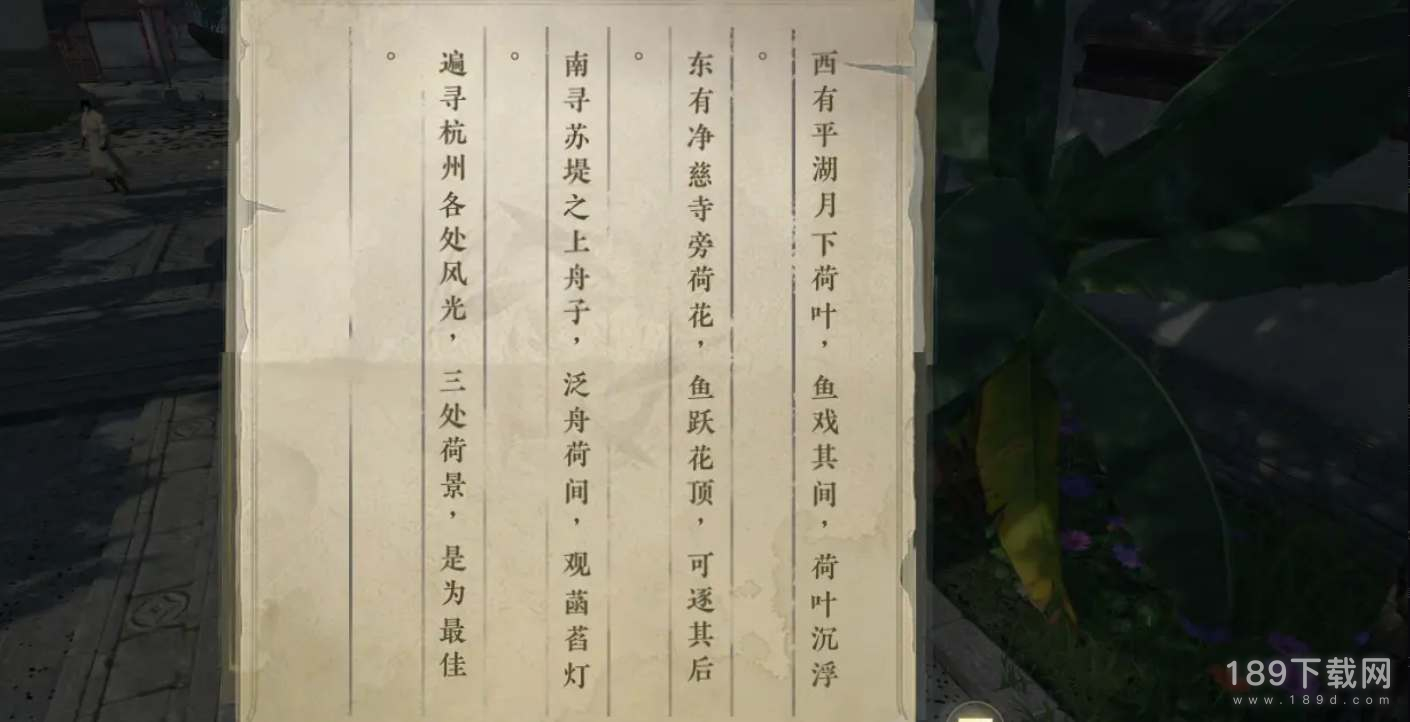 西有平湖月下荷叶，鱼戏其间，荷叶沉浮
。
东有净慈寺旁荷花，鱼跃花顶，可逐其后
。
南寻苏堤之上舟子，泛舟荷间，观菡萏灯
。
遍寻杭州各处风光，三处荷景，是为最佳
。
189下载网
www.189d.com